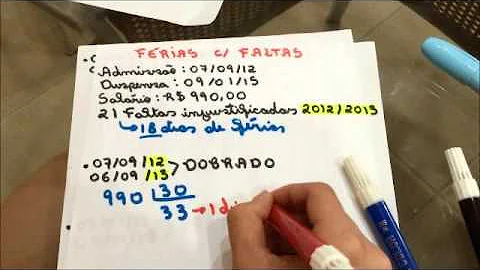 FÉRIAS C/ FALTAS
Admissão: 07/09/12
Dispensa: 09/01/15
Salário: R$ 990,00
21 Faltas injustificadas 2012/2013
18 dias de férias
07/09/12
06/09/13 > DOBRADO
990 30
33 → 1 di